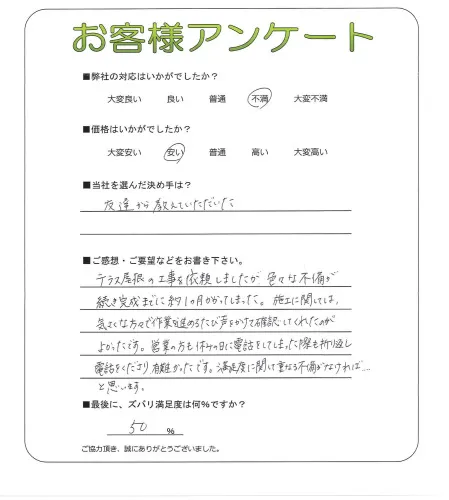 お客様アンケート
■弊社の対応はいかがでしたか？
大変良い 良い 普通 不満 大変不満
■価格はいかがでしたか？
大変安い 安い 普通 高い 大変高い
■当社を選んだ決め手は？
友達から教えていただいた
■ご感想・ご要望などをお書き下さい。
テラス屋根の工事を依頼しましたが色々な不備が
続き完成までに約1ヶ月かかってしまった。施工に関しては、
気さくな方々で作業が進めるたび声をかけて確認してくれたのが
よかったです。営業の方も休みの日に電話をしてしまった際も折り返し
電話をくださり有難かったです。満足度に関して重なる不備がなければ…
と思います。
■最後に、ズバリ満足度は何%ですか？
50 %
ご協力頂き、誠にありがとうございました。